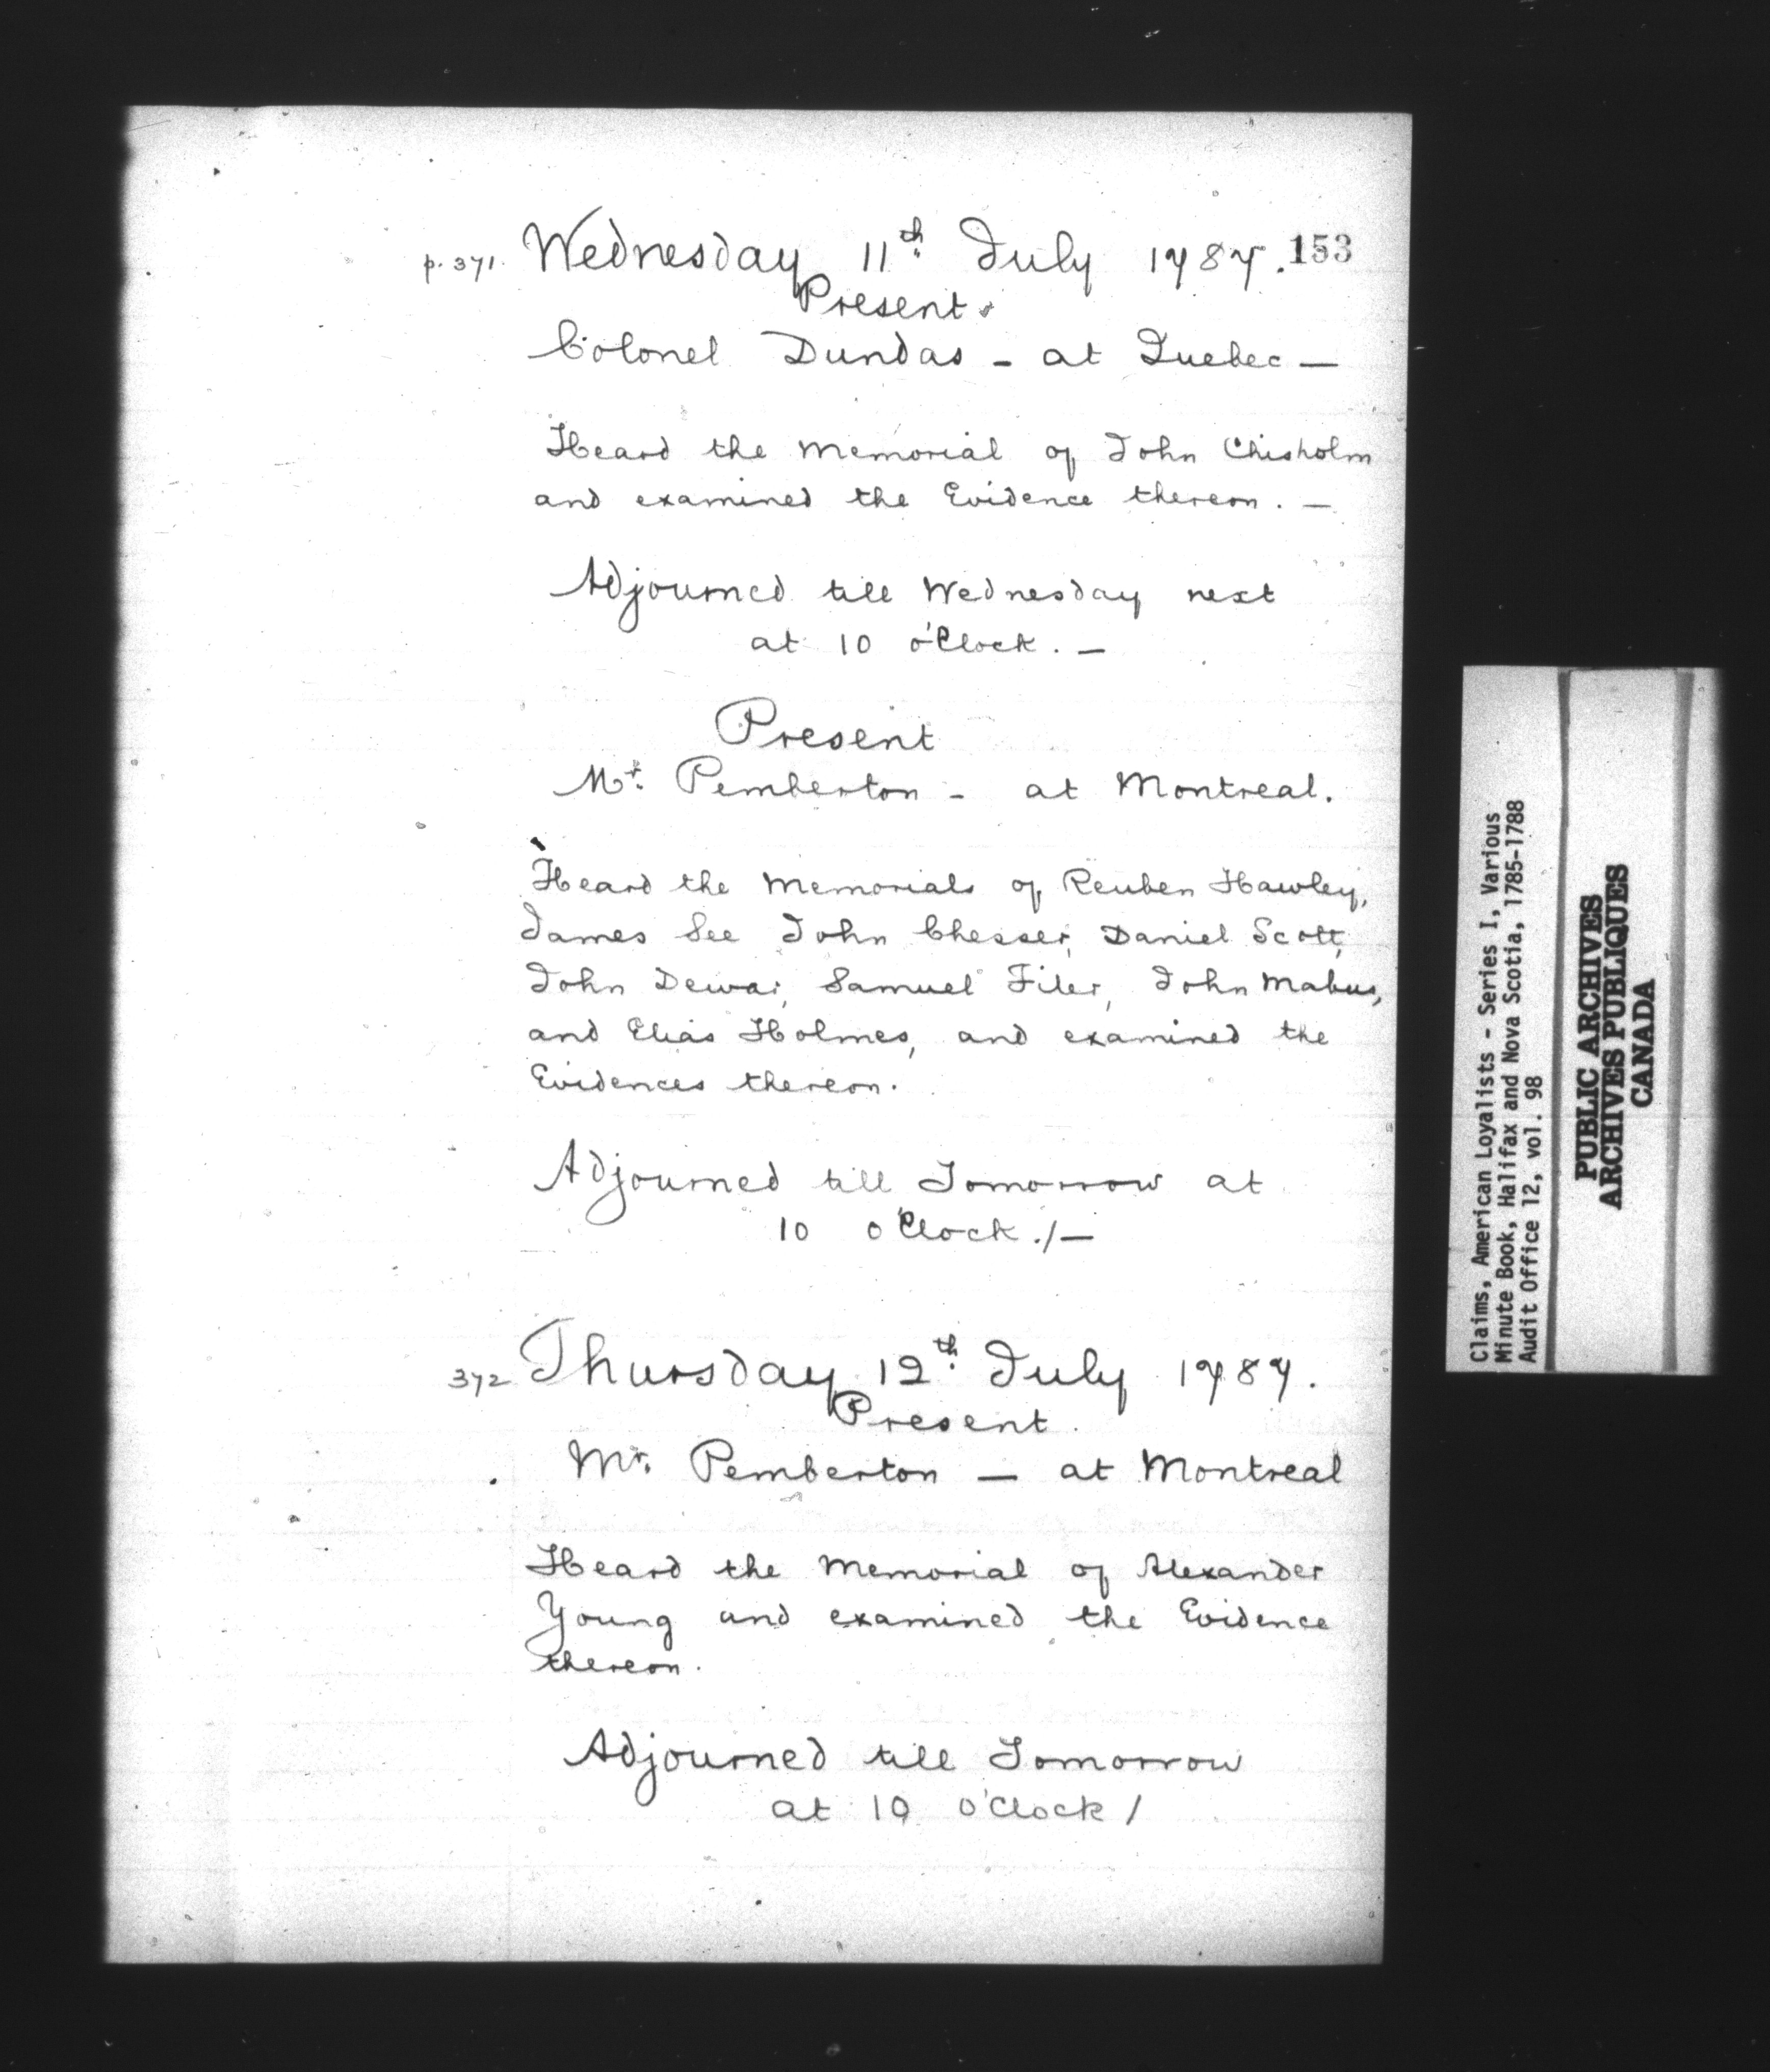 p. 371. Wednesday 11th. July 1787. 153
Present.
Colonel Dundas - at Quebec —
Heard the Memorial of John Chisholm
and examined the Evidence thereon. —
Adjourned till Wednesday next
at 10 o'Clock. —
Present
Mr. Pemberton - at Montreal.
Heard the Memorials of Reuben Hawley,
James See John Chesser, Daniel Scott,
John Dewar, Samuel Filer, John Mabus,
and Elias Holmes, and examined the
Evidences thereon.
Adjourned till Tomorrow at
10 o'Clock ./—
372 Thursday 12th. July 1787.
Present.
Mr. Pemberton — at Montreal
Heard the Memorial of Alexander
Young and examined the Evidence
thereon.
Adjourned till Tomorrow
at 10 o'Clock /
Claims, American Loyalists - Series I, Various
Minute Book, Halifax and Nova Scotia, 1785-1788
Audit Office 12, vol. 98
PUBLIC ARCHIVES
ARCHIVES PUBLIQUES
CANADA